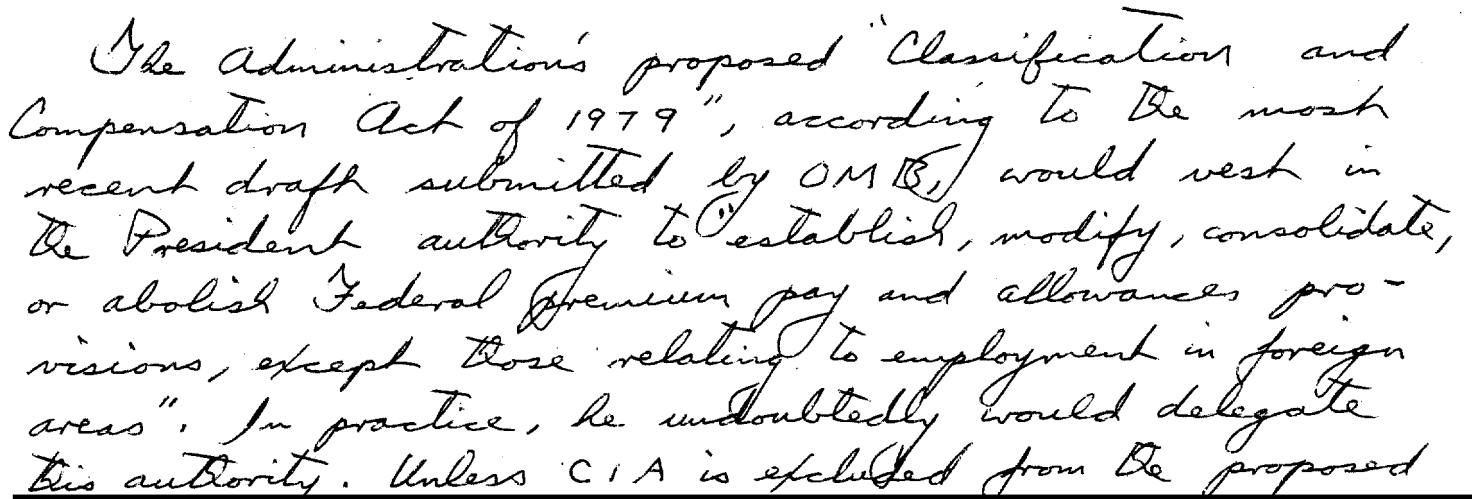 The Administration's proposed "Classification and
Compensation Act of 1979", according to the most
recent draft submitted by OMB, would vest in
the President authority to "establish, modify, consolidate,
or abolish Federal premium pay and allowances pro-
visions, except those relating to employment in foreign
areas". In practice, he undoubtedly would delegate
this authority. Unless CIA is excluded from the proposed